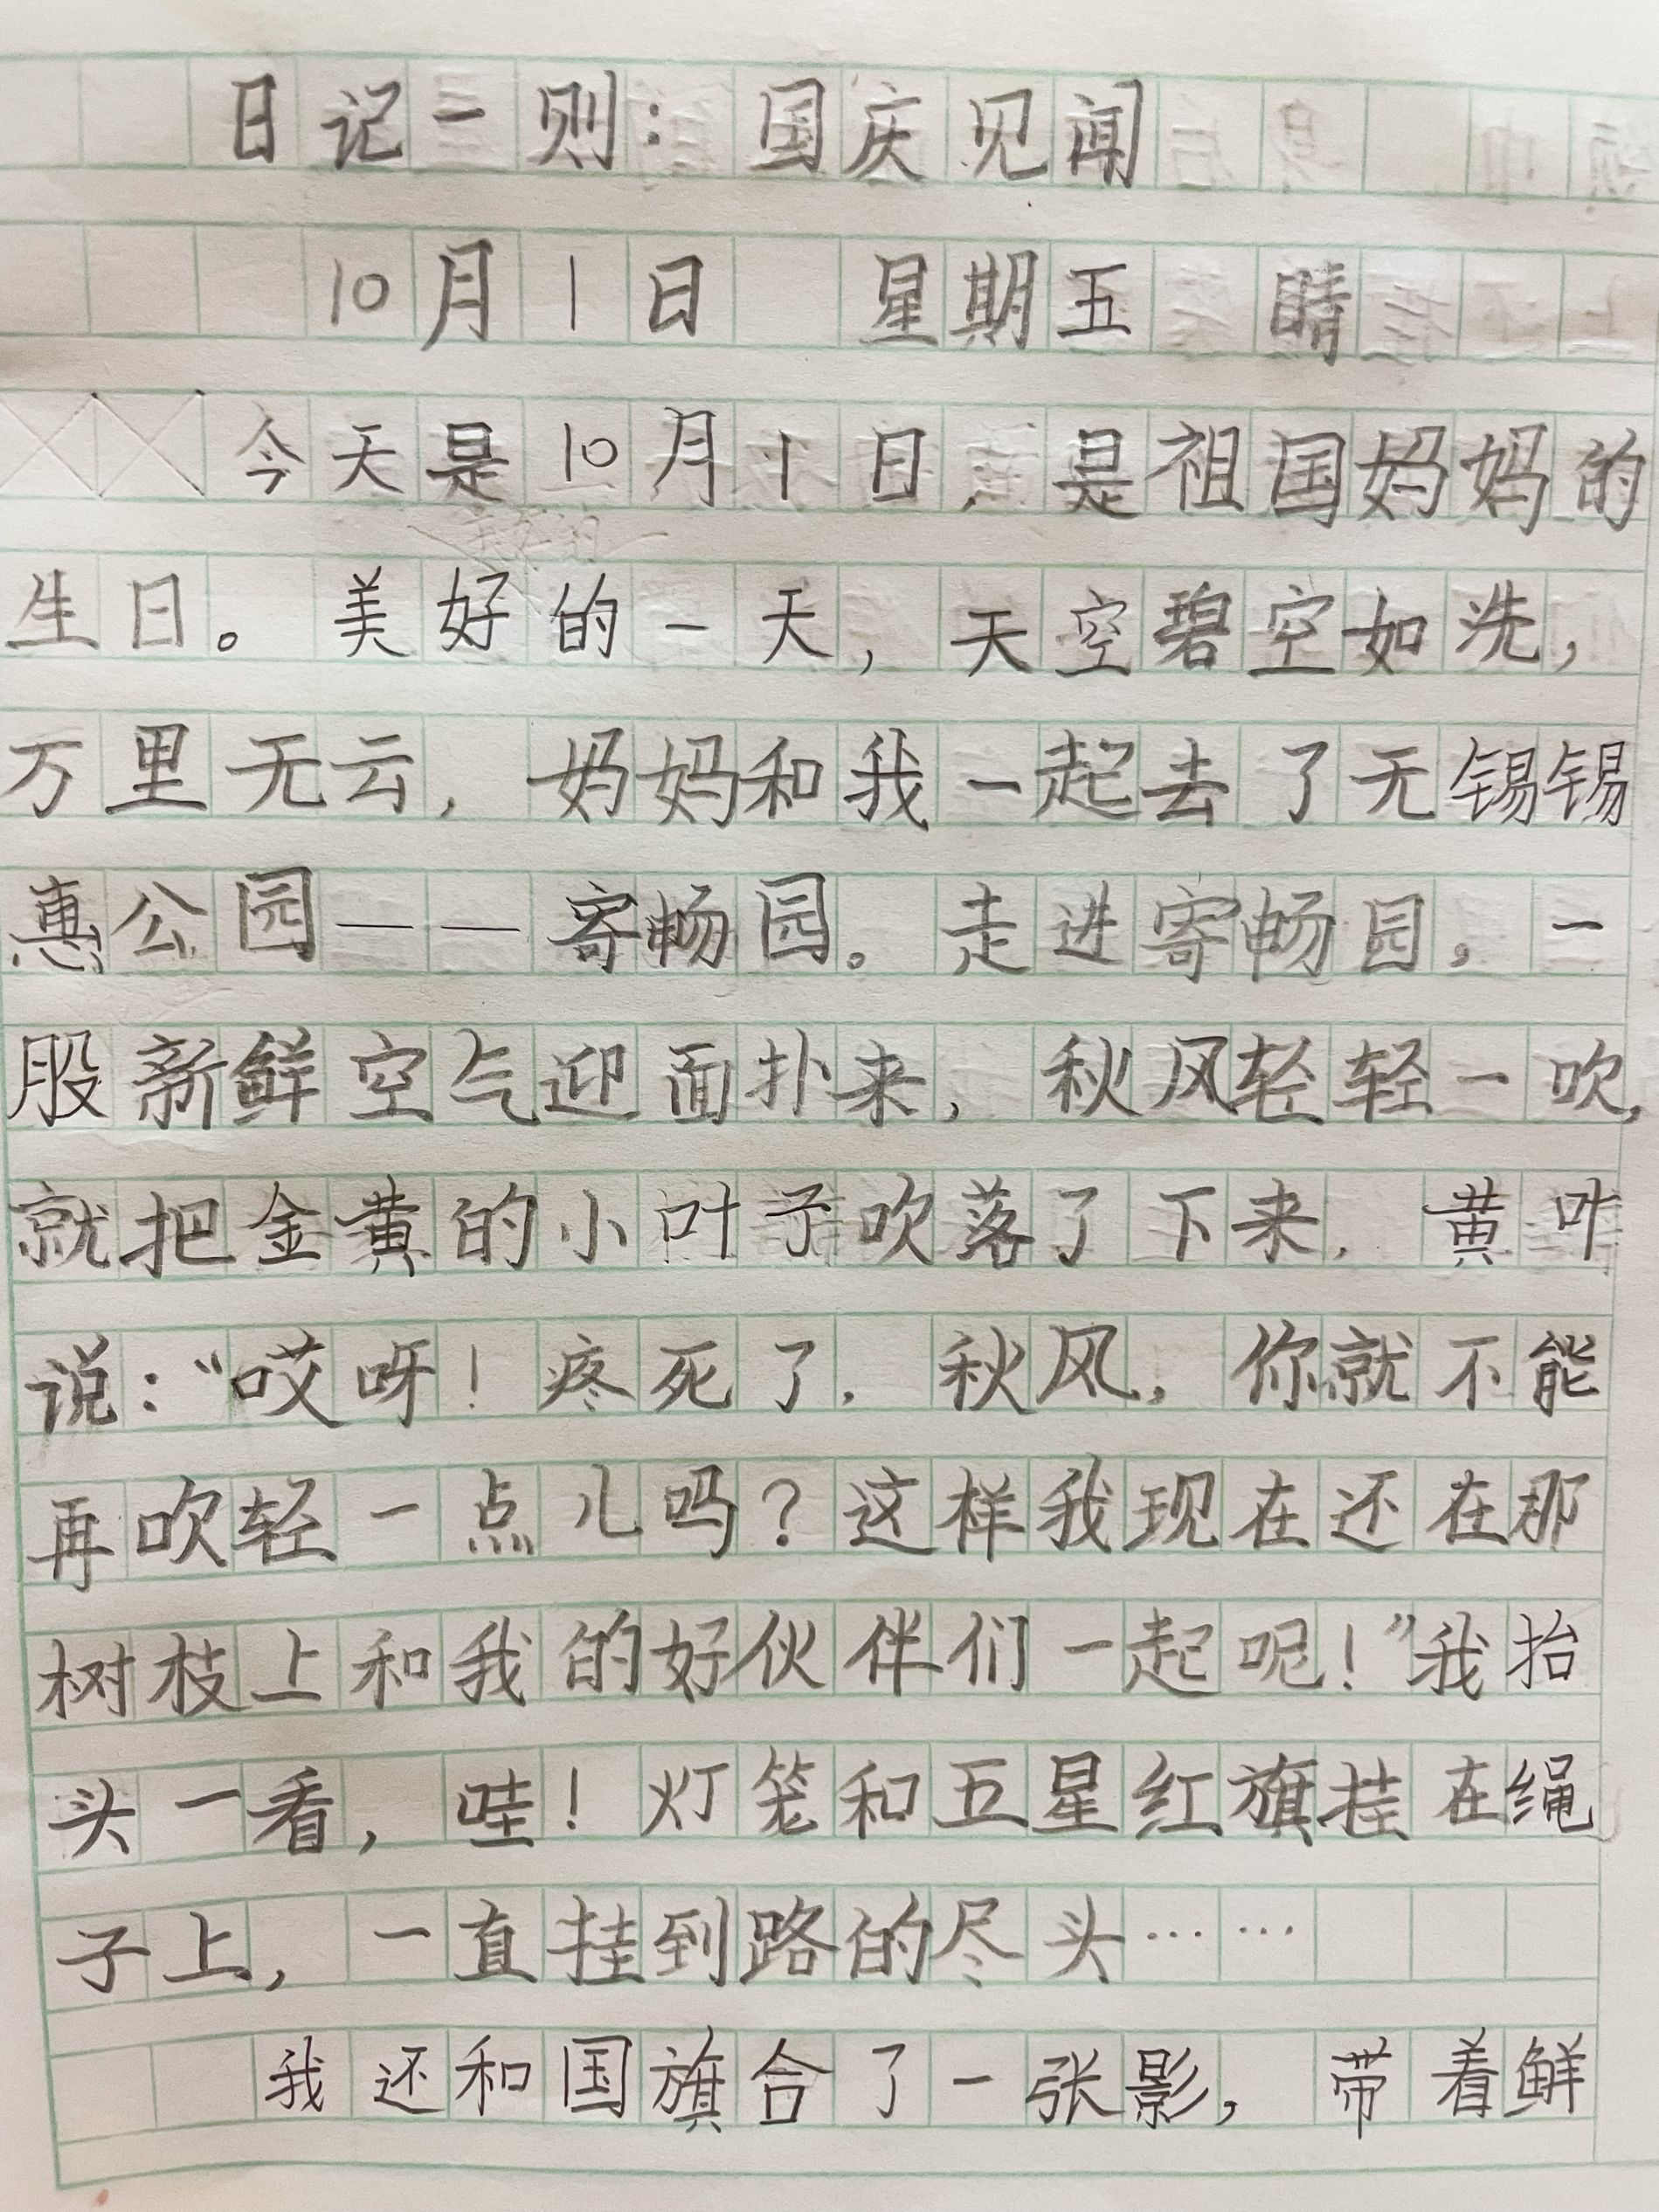 日记一则：国庆见闻
10月1日 星期五 晴
今天是10月1日，是祖国妈妈的
生日。美好的一天，天空碧空如洗，
万里无云，妈妈和我一起去了无锡锡
惠公园——寄畅园。走进寄畅园，一
股新鲜空气迎面扑来，秋风轻轻一吹，
就把金黄的小叶子吹落了下来，黄叶
说：“哎呀！疼死了，秋风，你就不能
再吹轻一点儿吗？这样我现在还在那
树枝上和我的好伙伴们一起呢！”我抬
头一看，哇！灯笼和五星红旗挂在绳
子上，一直挂到路的尽头……
我还和国旗合了一张影，带着鲜